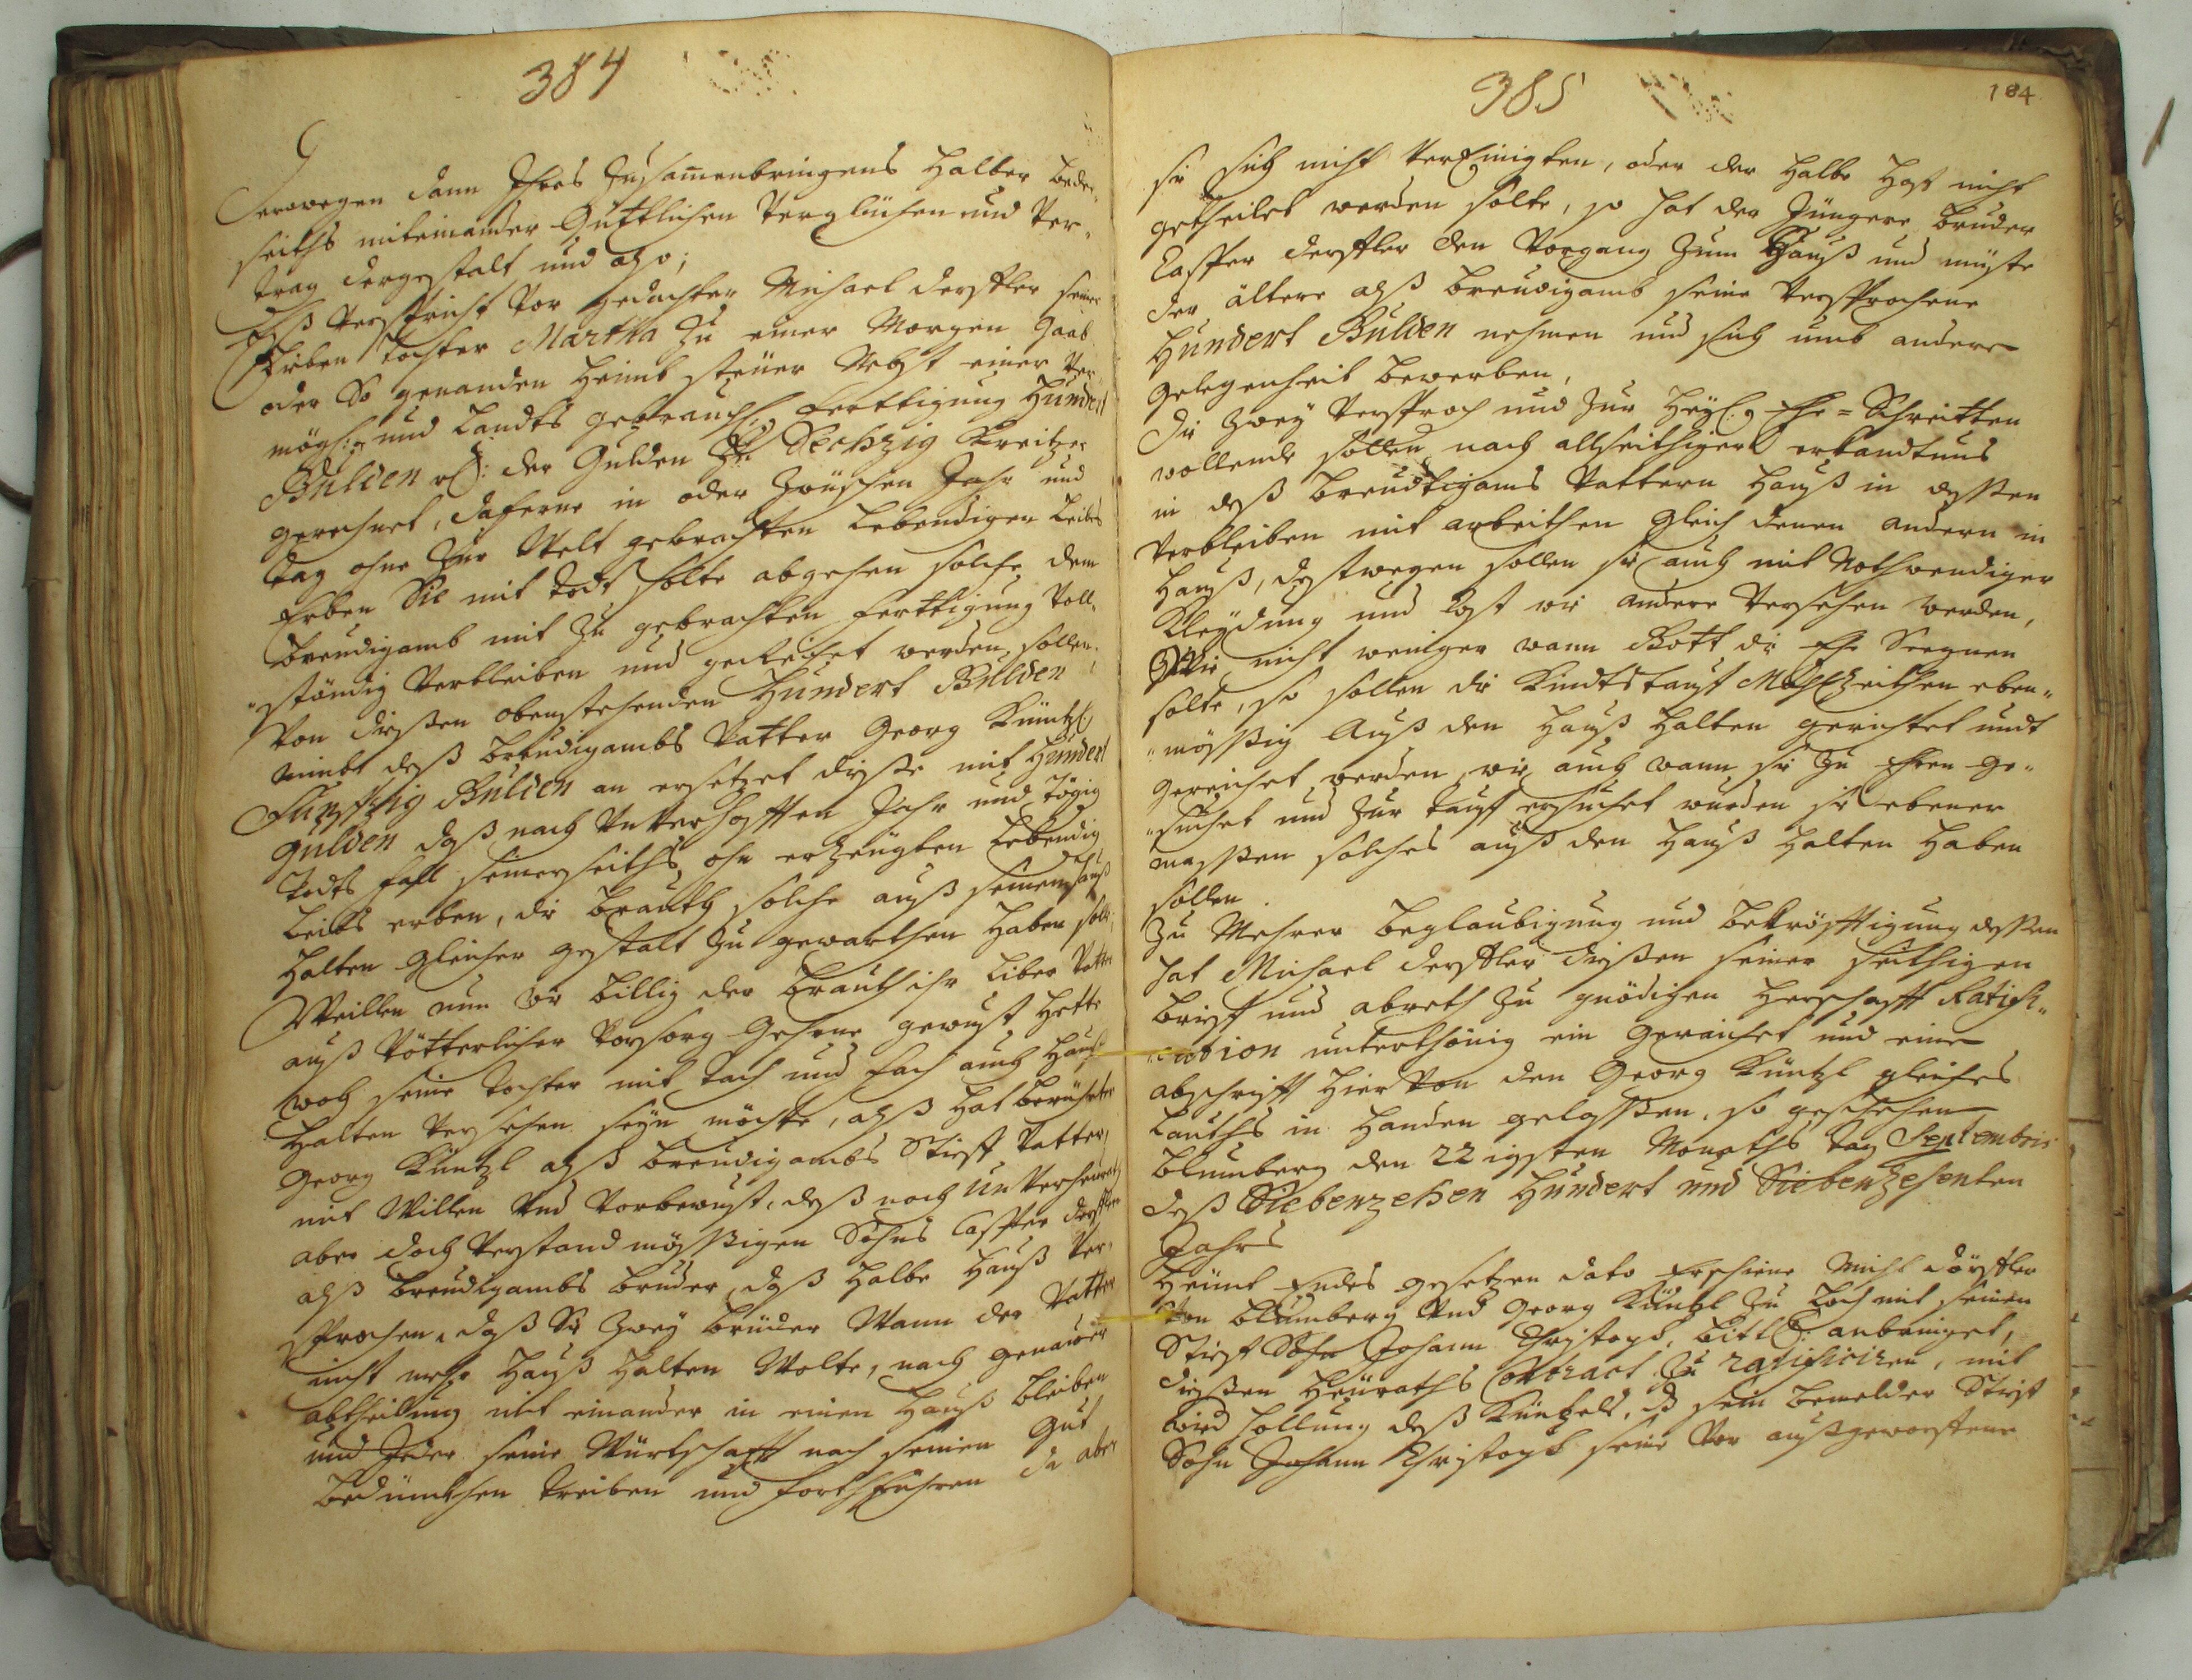 384
Derowegen dann Ihres Zusam̅enbringens halber beder-
seiths miteinander Güttlichen Verglichen und Ver-
trag dergestalt und also;
Eß Verspricht Vor gedachter Michael Derffler seiner
Lieben tochter Martha zu einer Morgen Gaab
oder So genanden heimb steüer Nebst einer Ver-
mögl: und Landts gebrauchl: fertigung Hundert
Gulden rh: der Gulden Zu Sechzig Kreitzer
gerechnet, daferne in oder Zwischen Jahr und
tag ohne Zur Welt gebrachten Lebendigen Leibes
Erben Sie mit todt solte abgehen solche dem
breudigamb mit Zu gebrachten ferttigung Voll-
ständig Verbleiben und gereichet werden sollen.
Von dießen obenstehenden Hundert Gulden
nimbt deß breudigambs Vatter Georg Küntzl:
Fünffzig Gulden an ersetzet dieße mit Hundert
gulden daß nach Unverhofften Jahr und tägig
Todts fall seinerseiths ohn erzeügten Lebendig
Leibs erben, die brauth solche auß seinem Hauß
halten gleicher gestalt Zu gewarthen haben solle,
Weillen nun wie billig der brauth ihr lieber Vatter
auß Vätterlicher Vorsorg Gehrne gewust hette
wo seine tochter mit tach und fach auch Hauß
halten Versehen seyn möchte, alß hat berührter
Georg Küntzl alß breudigambs Stieff Vatter,
mit Willen Und Vorbewust, deß noch UnVerheurath
aber doch Verstand mäßigen Sohns Casper Derffler
alß breudigambs bruder, daß halbe Hauß Ver-
sprochen, daß Sie Zwey brüder Wann der Vatter
nicht mehr Hauß halten Wolte, nach genauer
abtheilung mit einander in einen Hauß bleiben
und Jeder seine Würtschafft nach seinen Gut
bedüncken treiben und forthführen da aber
385
184
sie sich nicht VerEinigten, oder der halbe Hoff nicht
getheilet werden solte, so hat der Jüngere bruder
Casper Derffler den Vorgang Zum Hauß und müste
der ältere alß breudigamb seine Versprochene
Hundert Gulden nehmen und sich umb andere
gelegenheit bewerben,
Die Zwey Versproch und Zur Heyl: Ehe=Schreitten
wollende sollen nach allseithiger erkandtnus
in deß breudtigams Vattern Hauß in deßen
Verbleiben mit arbeithen gleich denen andern in
Hauß, destwegen sollen sie auch mit Nothwendiger
Kleydung und Kost wie andere Versehen werden,
Wie nicht weniger wann Gott die Ehe Seegnen
solte, so sollen die Kindtstauff Mahlzeithen eben-
mäßig Auß den Hauß halten gerichtet undt
gereichet werden, wie auch wann sie Zu Ehren ge-
suchet und Zur tauff ersuchet wurden sie ebener
maßen solches auß den Hauß halten haben
sollen.
Zu Mehrer beglaubigung und bekräfftigung deßen
hat Michael Derffler dießen seiner seithigen
brieff und abreth Zu gnädigen Herschafft Ratifi-
cation unterthänig ein gereichet und eine
abschrifft hier Von den Georg Küntzl gleiches
Lauths in Handen gelaßen. so geschehen
Blumberg den 22 igsten Monaths tag Septembris
deß Siebenzehen Hundert und Siebenzehenten
Jahrs
Heünt Endes gesetzen dato Erschiene Michl Dörffler
Von Blumberg Und Georg Küntzl Zu Loch mit seinen
Stieff Sohn Johann Christoph, bittl: anbringet,
dießen Heüraths Contract Zu ratificiren, mit
wied hollung deß Küntzels, dß sein bemelder Stieff
Sohn Johann Christoph seine Vor außgeworffene